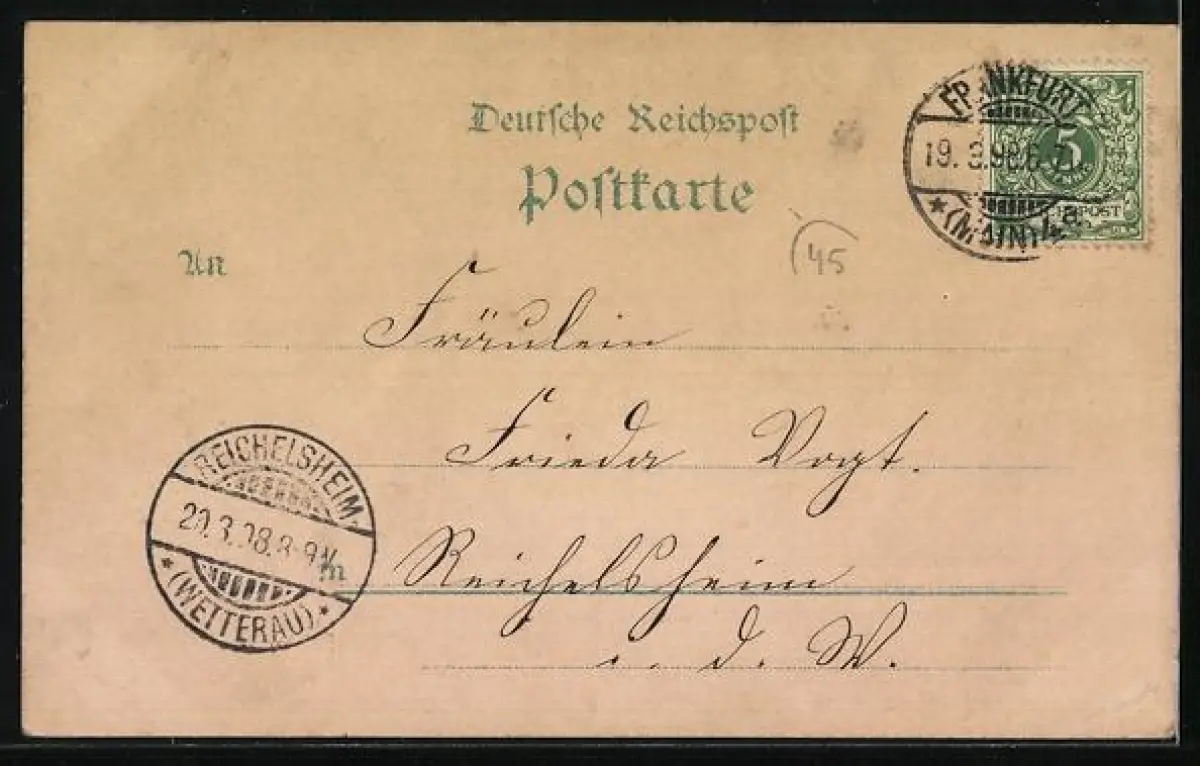 Deutsche Reichspost
Postkarte
FRANKFURT
19. 3. 98. 6-7
(MAIN)
5
An
45
Fräulein
Frieda Vogt.
Reichelsheim
i. d. W.
REICHELSHEIM
20.3.98.8-9 V
(WETTERAU)
in